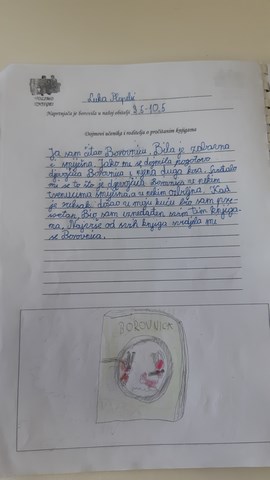 Luka
Naprtnjača je boravila u našoj obitelji 8.5-10.5
Dojmovi učenika i roditelja o pročitanim knjigama
Ja sam čitao Borovnicu. Bila je zabavna
i smiješna. Jako mi se dojmila pogotovo
djevojčica Borovnica i njena duga kosa. Svidjelo
mi se to što je djevojčica Borovnica u nekim
trenucima smiješna, a u nekim ozbiljna. Kad
je ruksak došao u moju kuću bio sam pre
sretan. Bio sam iznenađen sa tim knjiga
ma. Najviše od svih knjiga svidjela mi
se Borovnica.
BOROVNICA